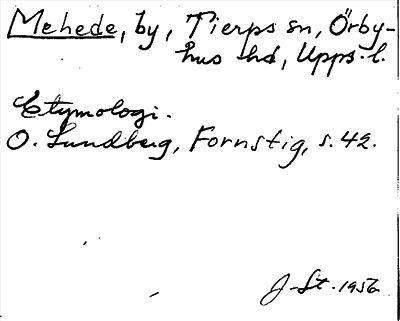 Mehede, by, Tierps sn, Örby-
hus hd, Upps. l.
Etymologi.
O. Lundberg, Fornstig, s. 42.
J-St. 1956